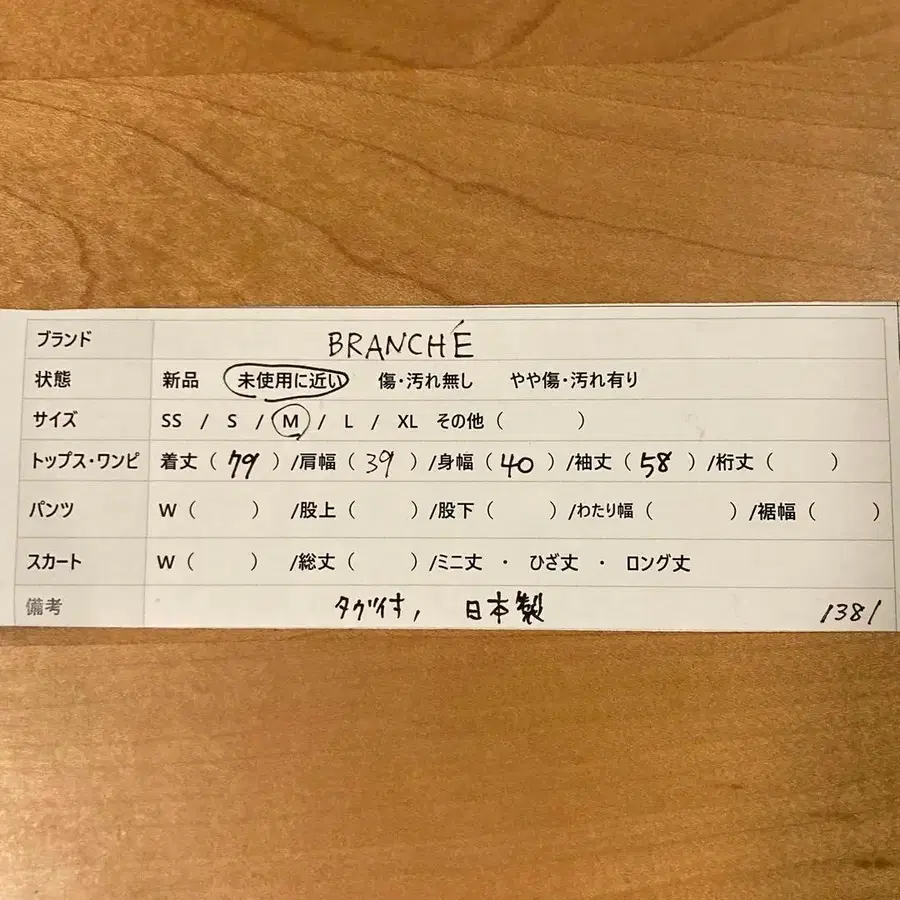 ブランド BRANCHÉ
状態 新品 未使用に近い 傷・汚れ無し やや傷・汚れ有り
サイズ SS / S / M / L / XL その他 ( )
トップス・ワンピ 着丈 ( 79 ) /肩幅 ( 39 ) /身幅 ( 40 ) /袖丈 ( 58 ) /桁丈 ( )
パンツ W ( ) /股上 ( ) /股下 ( ) /わたり幅 ( ) /裾幅 ( )
スカート W ( ) /総丈 ( ) /ミニ丈 ・ ひざ丈 ・ ロング丈
備考 タグ付, 日本製 1381